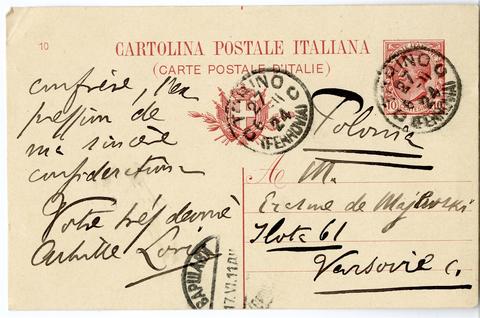 10
CARTOLINA POSTALE ITALIANA
(CARTE POSTALE D'ITALIE)
confrère, l'ex
pression de
ma sincère
considération
Votre très dévoué
Achille Loria
TORINO C
27
24
(FERROVIA)
TORINO C
27
24
(FERROVIA)
10
10
Polonia
A M.
Erasme de Majewski
Złota 61
Varsovie
ВАРШАВА
17.VI.11